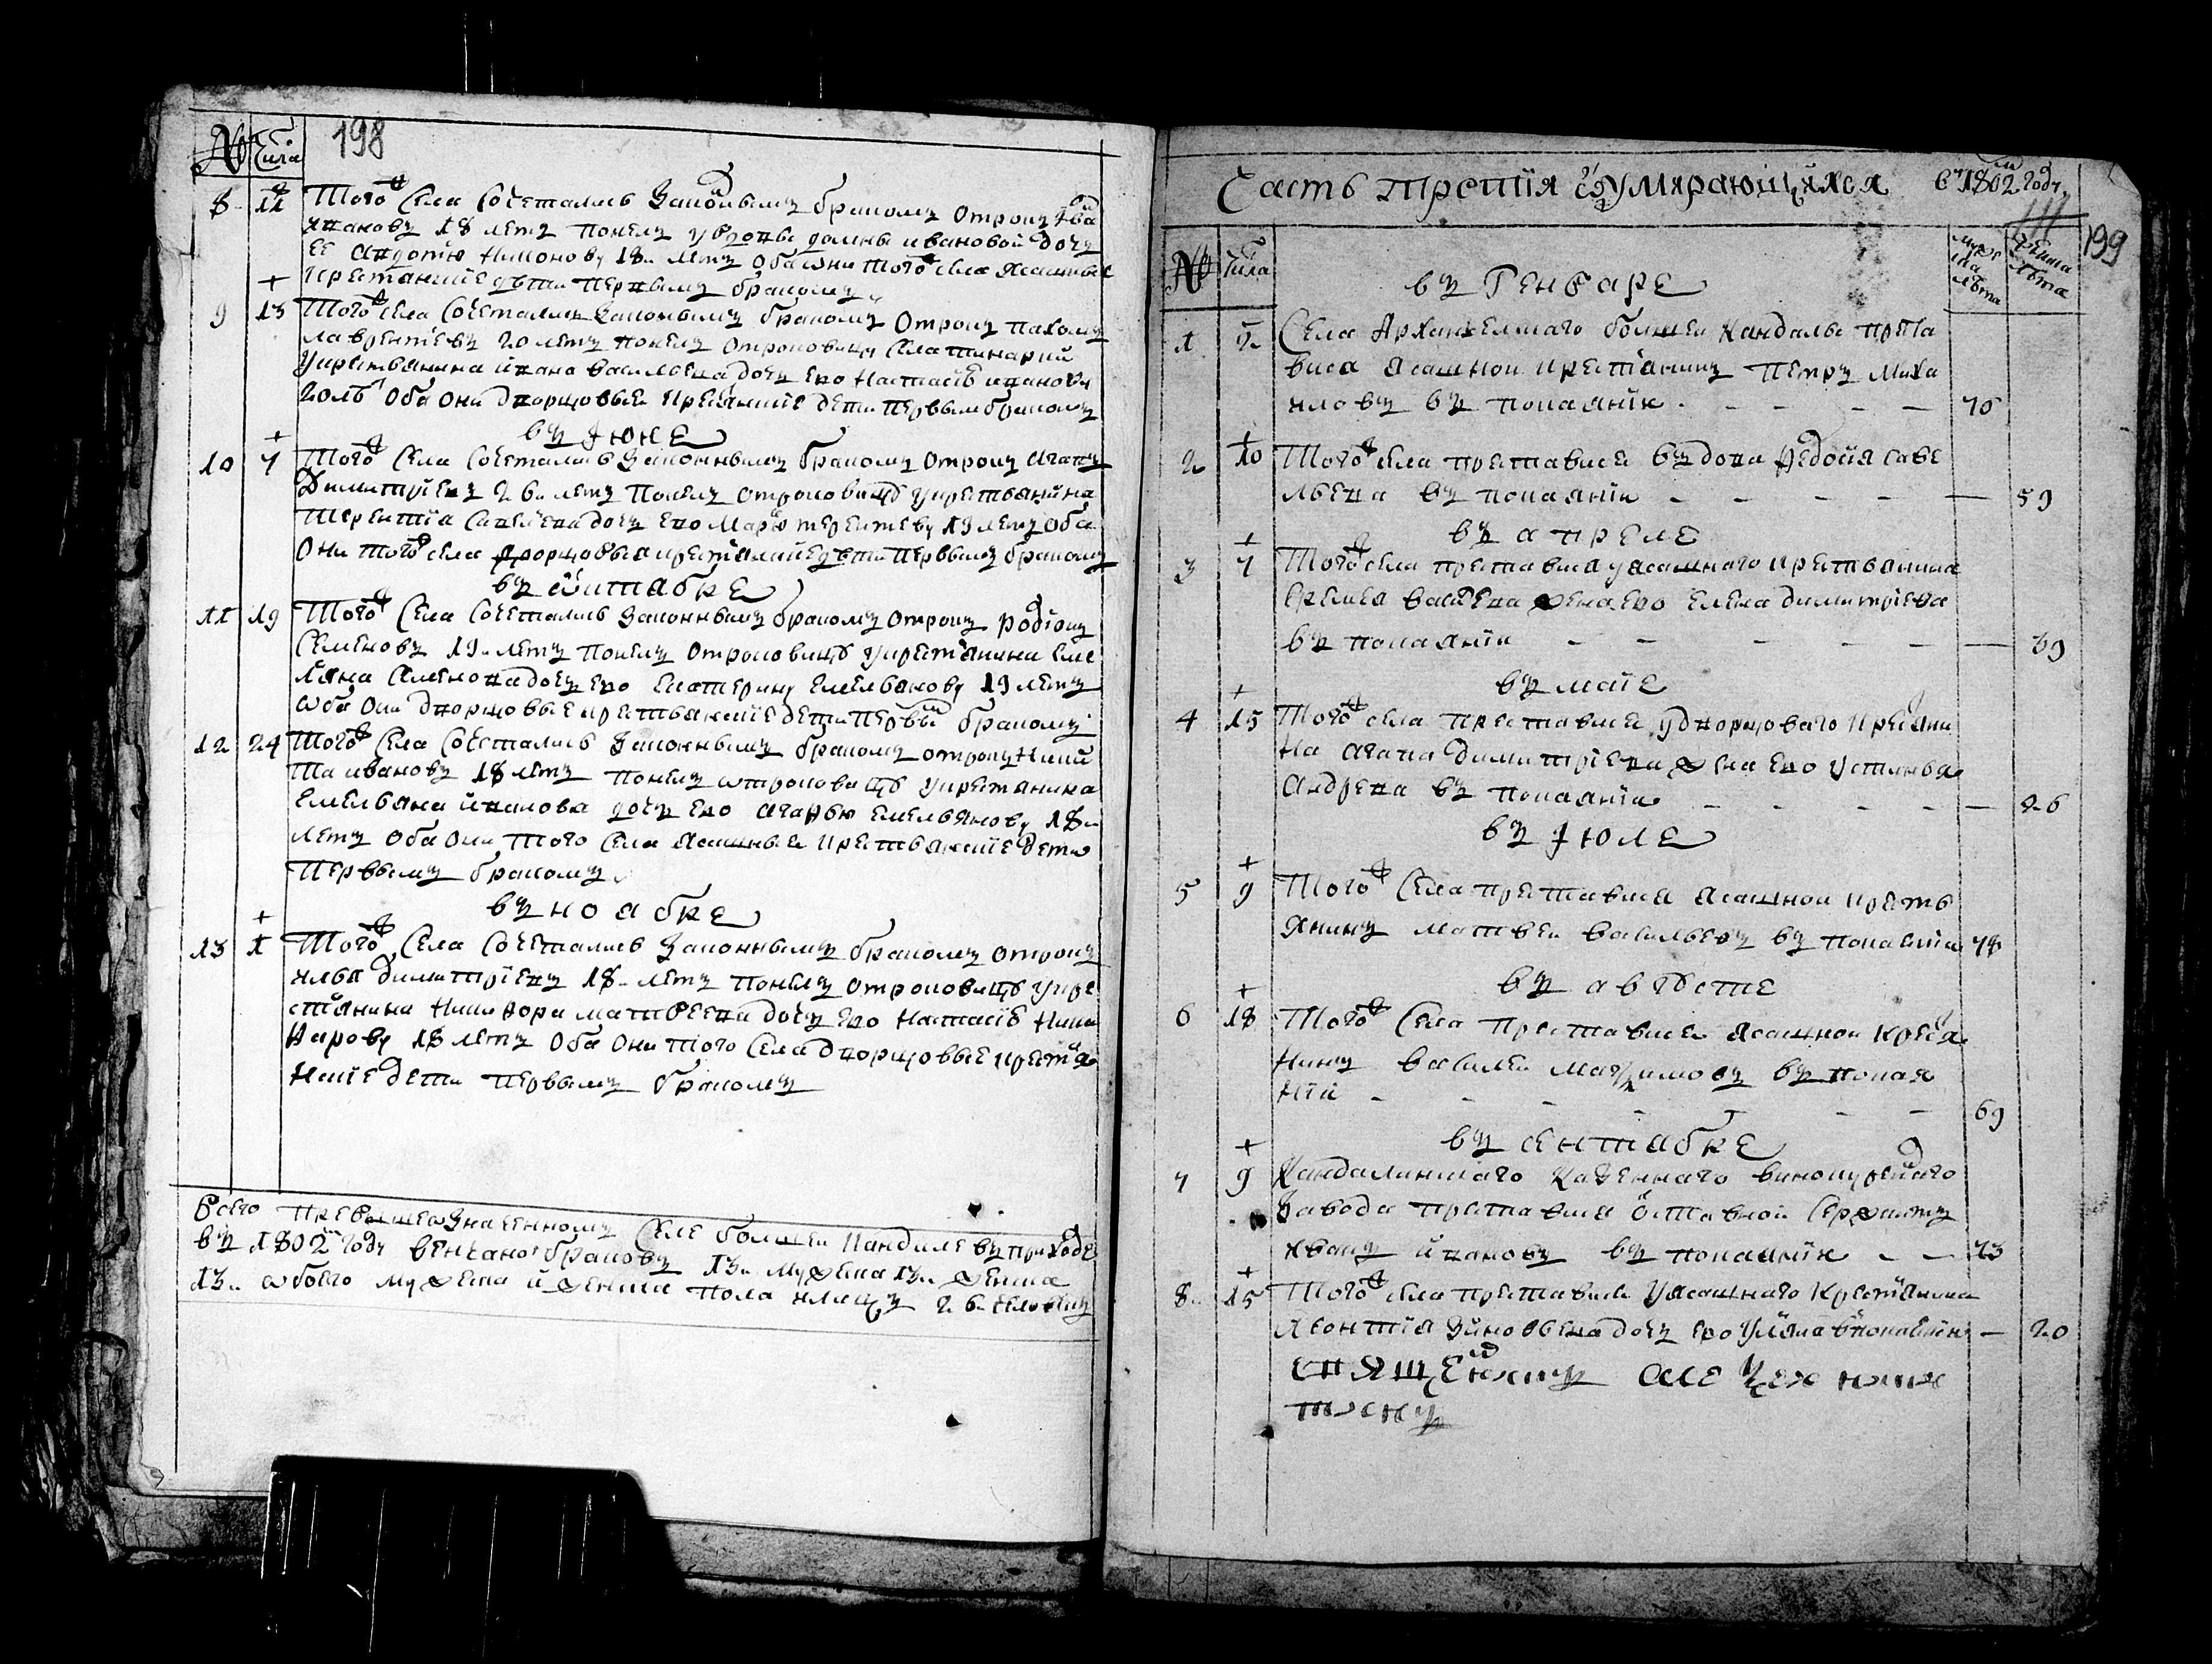 № Числа 198
8 11 Тогожъ Села Сочетались Законнымъ бракомъ отрокъ Іванъ
ивановъ 18 летъ понелъ увдовы домны ивановой дочь
ее Авдотю 18 летъ оба они того села Ясашные
Крестьянские дети первымъ бракомъ
9 13 Тогожъ Села Сочетались Законнымъ бракомъ Отрокъ пахомъ
лаврентьевъ 20 летъ понелъ отроковицу села
укрестьянина ивана дочь ево Настасю иванову
20 летъ Оба Они дворцовыя крестьянские дети первымъ бракомъ
въ Іюне
10 7 Тогожъ Села Сочетались Законнымъ бракомъ отрокъ Агапъ
Димитріевъ 26 летъ Понелъ отроковицъ укрестьянина
Терентия Савелева дочь ево Марю терентеву 19 летъ оба
Они тогожъ села дворцовыя крестьянские дети первымъ бракомъ
въ октябре
11 19 Тогожъ Села Сочетались Законнымъ бракомъ отрокъ родіонъ
Семеновъ 19 летъ Понелъ отроковицъ укрестьянина Еме
ляна Семенова дочь ево Екатерину Емельянову 19 летъ
оба Они дворцовые крестьянские дети первымъ бракомъ
12 24 Тогожъ Села Сочетались Законнымъ бракомъ отрокъ Ники
та ивановъ 18 летъ понелъ отроковицъ укрестьянина
Емельяна иванова дочь ево Агафью Емельянову 18
летъ Оба Они Того Села Ясашные крестьянские дети
Первымъ бракомъ
въ ноябре
13 1 Тогожъ Села Сочетались Законнымъ бракомъ отрокъ
илья димитріевъ 18 летъ понелъ отроковицъ укре
стьянина Никифора матвеева дочь ево Настасю Ники
фарову 18 летъ Оба Они того Села дворцовые крестья
нские дети первымъ бракомъ
Всего превышеозначенному Селе болшеи Кандале въ приходе
въ 1802м году венчано браковъ 13 мужеска 13 женска
13 обоего мужеска и женска пола лицъ 26 человекъ
Часть третія оумирающихся въ 1802м году
199
№ Числа въ Генваре мужеска лета женска лета
1 2 Села Архангелскаго болшеи Кандалы преста
вися Ясашнои крестьянинъ Петръ Миха
иловъ въ покаяніи 70
2 10 Тогожъ села преставися вдова Федосія саве
льева въ покаяніи 59
въ апреле
3 7 Тогожъ села преставися у ясашнаго крестьянина
Еремея жена ево Елена димитріева
въ покаяніи 39
въ маіе
4 15 Тогожъ села преставися удворцоваго крестьяни
на Агапа димитріева жена ево устинья
Андрева въ покаяніи 26
въ Іюле
5 9 Тогожъ Села преставися ясашнои кресть
янинъ матвеи васильевъ въ покаяніи 78
въ августе
6 18 Тогожъ Села Преставися ясашнои Крестья
нинъ васили Маѯимовъ въ покая
ніи 69
въ сентябре
7 9 Кандалинскаго Казеннаго винокуреннаго
Завода преставися отставнои Сержантъ
иванъ ивановъ въ покаяніи 73
8 15 Тогожъ села преставися Уясашнаго Крестьянина
леонтія Зиновьева дочь ево Уліяна впокаяніи 20
священникъ алеѯеи